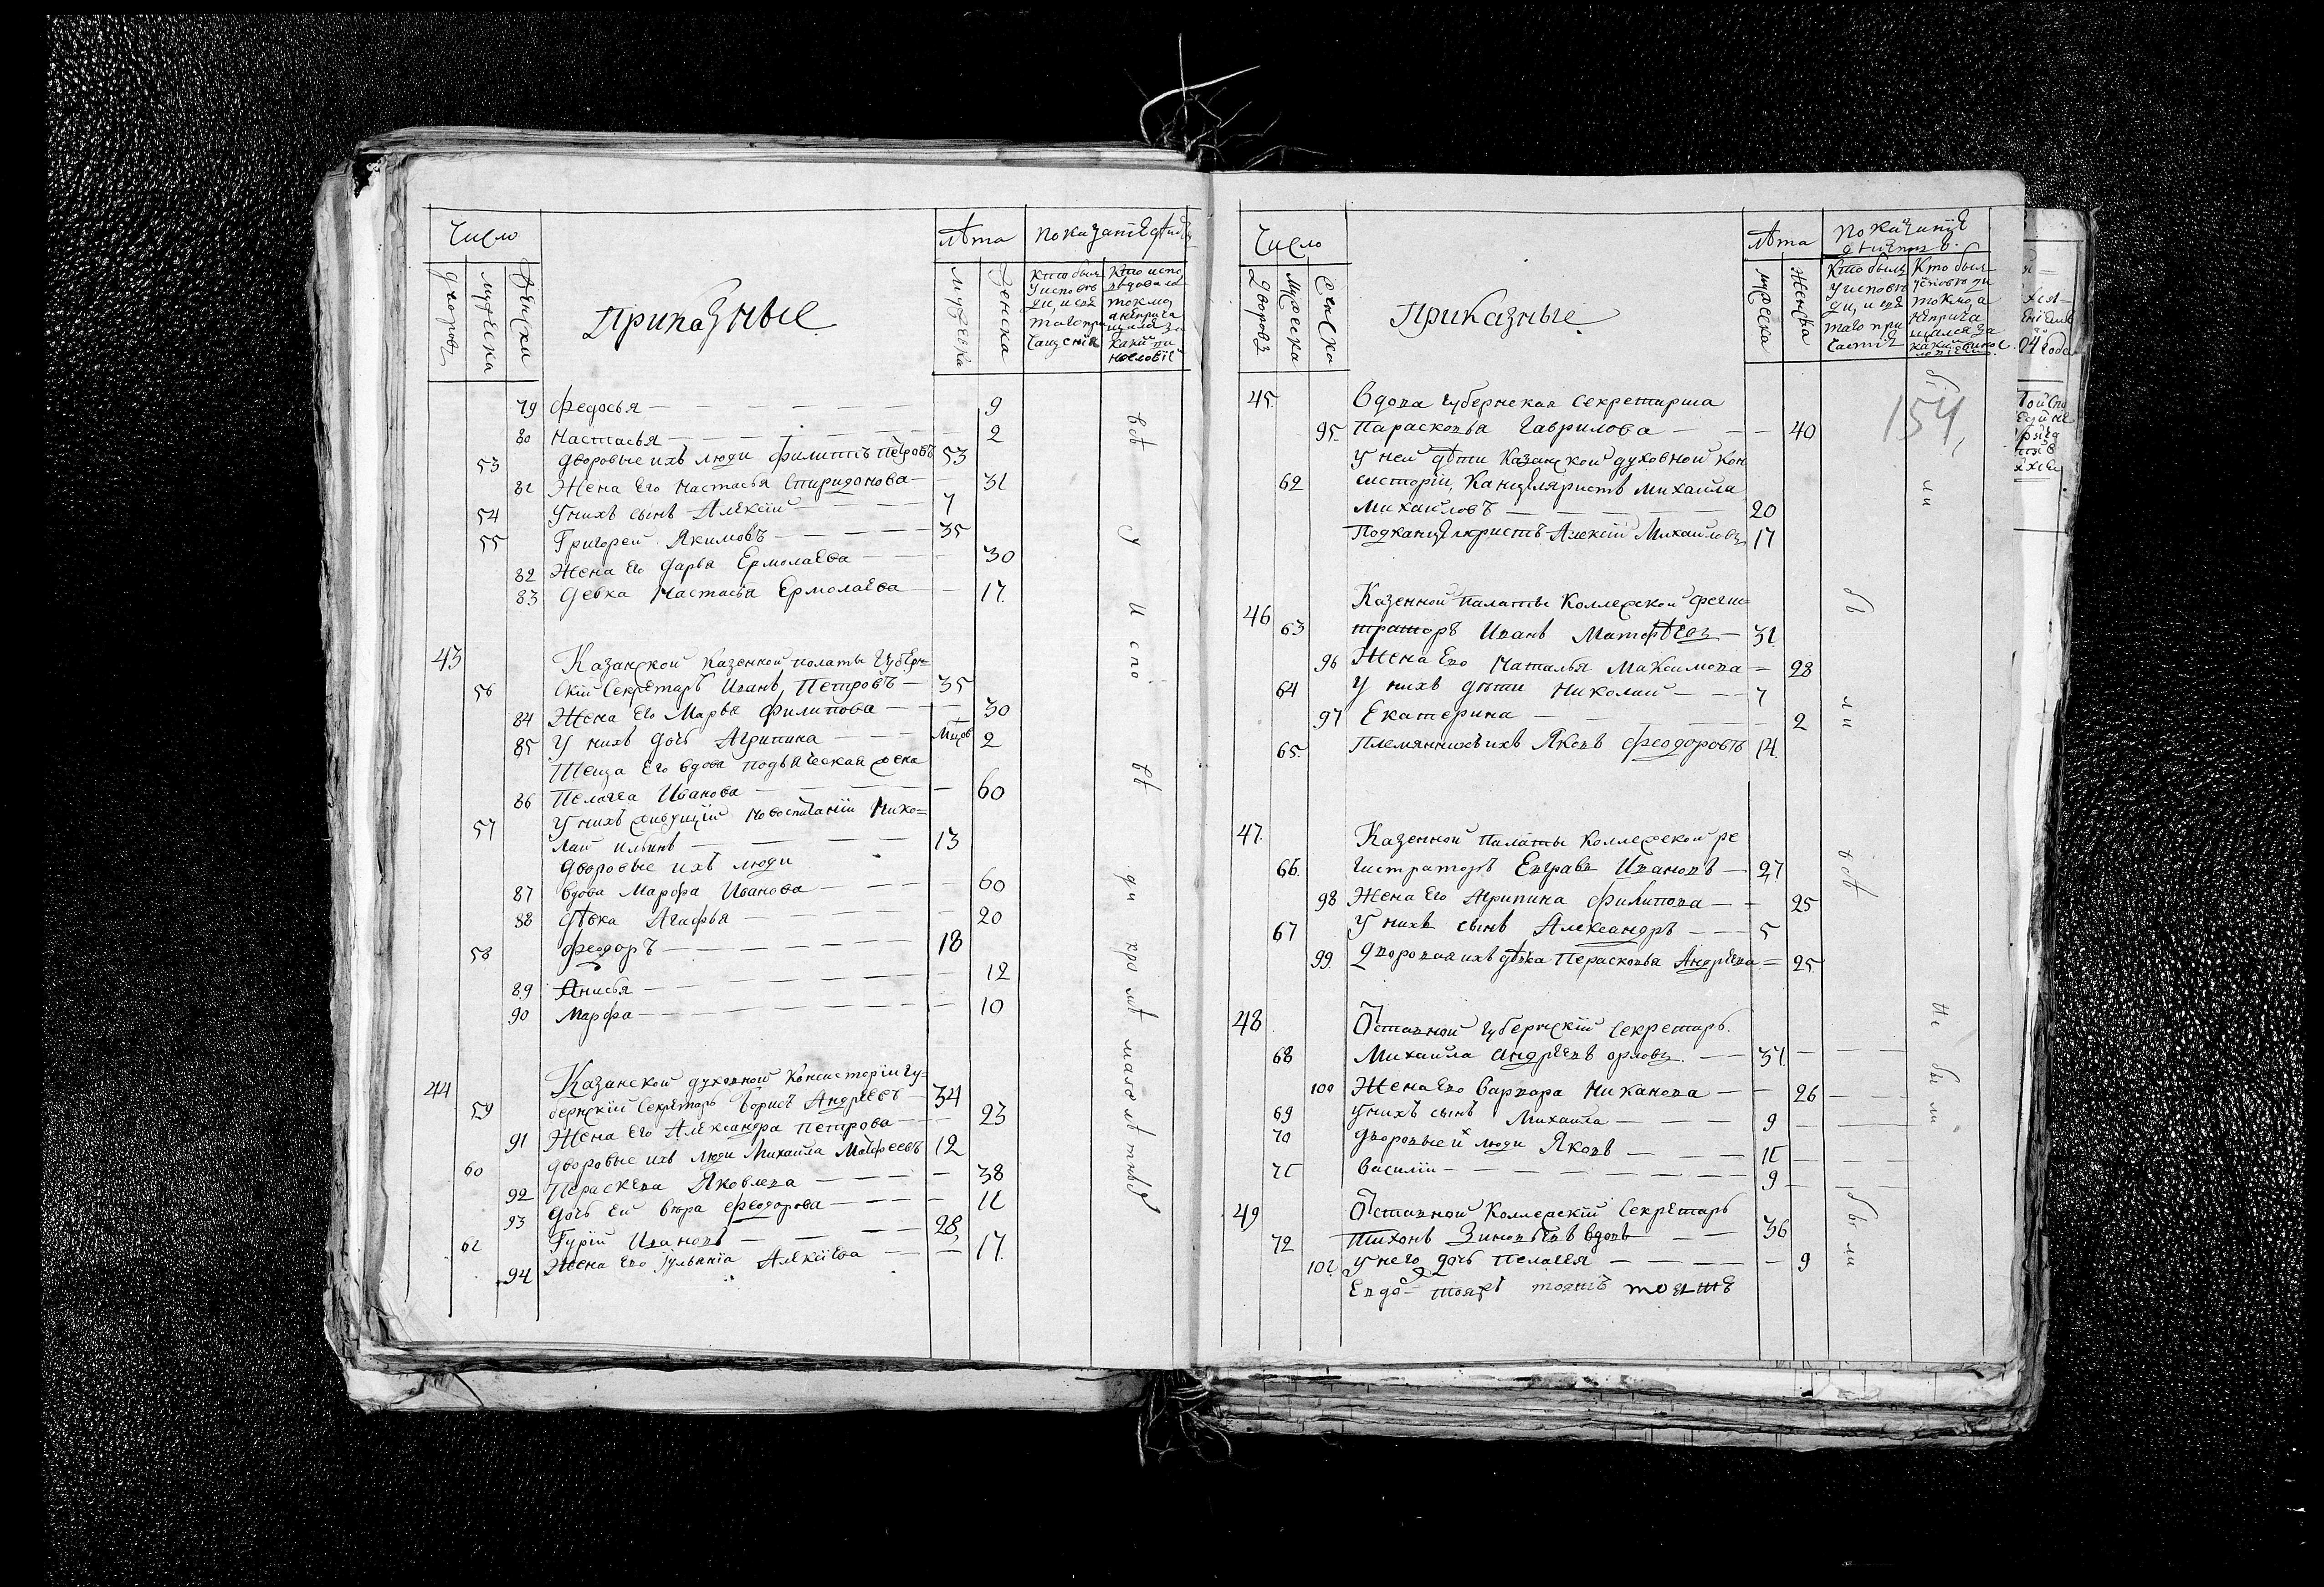 Число
дворовъ
мужеска
женска
Приказные
лѣта
мужеска
женска
Показанїе дѣйст
Кто былъ
у исповѣ
ди, и св
таго при
чащенїя
Кто испо
вѣдовался
токмо
а неприча
щался за
какимъ
79 Федосья — — — 9
80 Настасья — — — 2
53 дворовые ихъ люди Филиппъ Петровъ 53
81 Жена Его Настасья Спиридонова — 31
54 У нихъ сынъ Алексїй — — 7
55 Григорей Якимовъ — — — 35
82 Жена Его Дарья Ермолаева — 30
83 Девка Настасья Ермолаева — 17
43 Казанской Казенной полаты Губерн=
56 скїй Секретарь Иванъ Петровъ — 35
84 Жена Его Марья Филипова — 30
85 У нихъ дочь Агрипина — — 2
Теща Его вдова подьяческая жена
86 Пелагея Иванова — — 60
57 У нихъ живущїй Николай
лай Ильинъ — — 13
Дворовые ихъ люди
87 вдова Марфа Иванова — — 60
88 дѣвка Агафья — — 20
58 Феодоръ — — — 18
89 Анисья — — 12
90 Марфа — — — 10
44 Казанской духовной Консисторїи гу=
59 бернскїй Секретарь Борисъ Андреевъ — 34
91 Жена Его Александра Петрова — 23
60 дворовые ихъ люди Михайла Матфеевъ 12
92 Пераскева Яковлева — — 38
93 дочь Ей Феодорова — — 11
61 Гурїй Ивановъ — — 28
94 Жена Его Iульянїа Алексїева — 17
всѣ у испо вѣ ди кромѣ малолѣтныхъ
Число
Дворовъ
Мужеска
женска
Приказные
лѣта
мужеска
Женска
Показанїе
Кто былъ
у исповѣ
ди, и свя
таго при
частїя
Кто былъ
токмо а
неприча
щался за
какимъ
154
45 Вдова Губернская Секретарша
95 Парасковья Гаврилова — — 40
У ней дѣти Казанской духовной кон
62 систорїи, Канцеляристъ Михайла
Михайловъ — — 20
Подканцеляристъ Алексїй Михайловъ 17
46 Казенной палаты Коллежской реги=
63 страторъ Иванъ Матфѣевъ — 31
96 Жена Его Наталья Максимова — 28
64 У нихъ дѣти Николай — — 7
97 Екатерина — — 2
65 Племянникъ ихъ Яковъ Феодоровъ 14
47 Казенной палаты Коллежской ре
66 гистраторъ Евграфъ Ивановъ — 27
98 Жена Его Агрипина Филипова — — 25
67 У нихъ сынъ Александръ — — 5
99 Дворовая ихъ дѣвка Перасковья Андрѣева = 25
48 Отставной Губернскїй Секретарь
68 Михайла Андрѣевъ Орловъ — — 31
100 Жена Его Варвара Никанова — — 26
69 У нихъ сынъ Михайла — — 9
70 дворовые и люди Яковъ — — 11
71 Василїи — — 9
49 Отставной Коллежскїй Секретарь
72 Тихонъ Зиновьевъ вдовъ — — 36
101 У него дочь Пелагея — — 9
бы ли
бы ли всѣ
не бы ли
бы ли
04 года